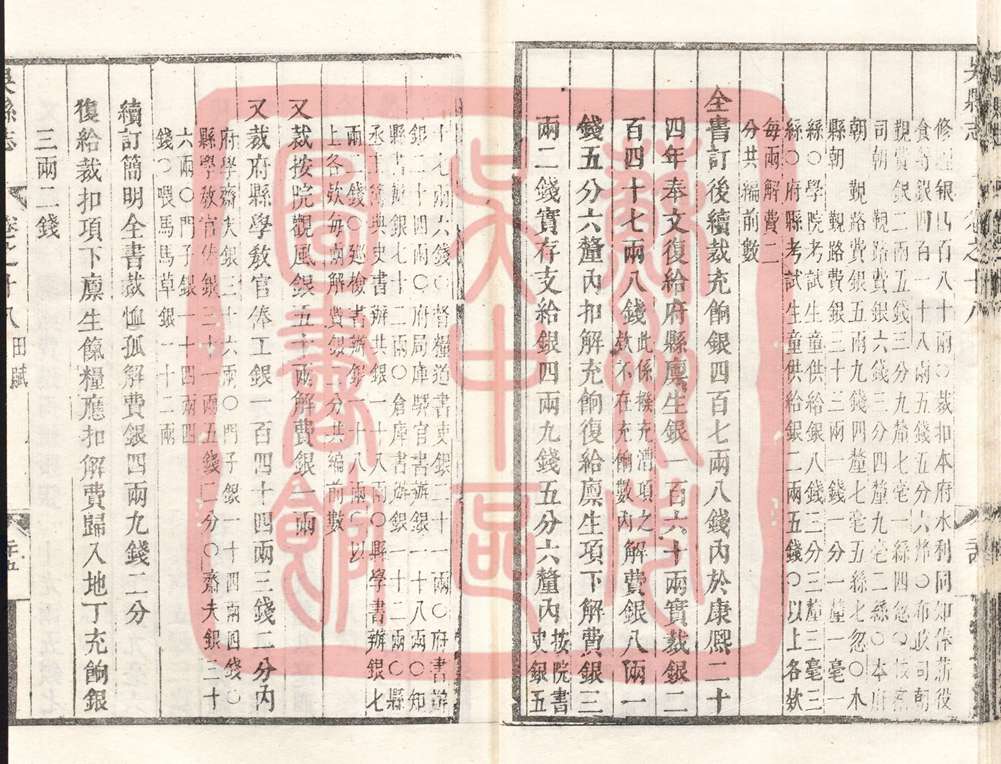 吳縣志 卷之十八
修理銀四百八十兩〇裁扣本府水利同知俸薪役
食
覲費銀二兩五錢三分九釐七毫一絲四忽〇
司朝 覲路費銀六錢三分四釐九毫二絲〇本府
朝 覲路費銀五兩九錢四釐七毫五絲七忽〇本
縣朝 覲路費銀三十三兩一錢一分一釐一毫一
絲〇學院考試生童供給銀八錢三分三釐三毫三
絲〇府縣考試生童供給銀二兩五錢〇以上各欵
每兩解費二
分共編前數
全書訂後續裁充餉銀四百七兩八錢內於康熙二十
四年奉文復給府縣廩生銀一百六十兩實裁銀二
百四十七兩八錢此係撥充漕項之
欵不在充餉數內解費銀八兩一
錢五分六釐內扣解充餉復給廩生項下解費銀三
兩二錢實存支給銀四兩九錢五分六釐內按院書
史銀五
十七兩六錢〇督糧道書吏銀二十一兩〇府書辦
銀二十四兩〇府局庫學官書辦銀一十八兩〇知
縣書辦銀七十二兩〇倉庫書辦銀一十二兩〇縣
丞主簿典史書辦共銀一十八兩〇縣學書辦銀七
兩二錢〇巡檢書辦銀一十八兩〇以
上各欵每兩解費銀二分共編前數
又裁按院觀風銀五十兩解費銀一兩
又裁府縣學敎官俸工銀一百四十四兩三錢二分內
府學齋夫銀三十六兩〇門子銀一十四兩四錢〇
縣學敎官俸銀三十一兩五錢二分〇齋夫銀三十
六兩〇門子銀一十四兩四
錢〇喂馬馬草銀一十二兩
續訂簡明全書裁恤孤解費銀四兩九錢二分
復給裁扣項下廩生餼糧應扣解費歸入地丁充餉銀
三兩二錢
吳縣志 卷之十八 田賦
吳中區
圖書館